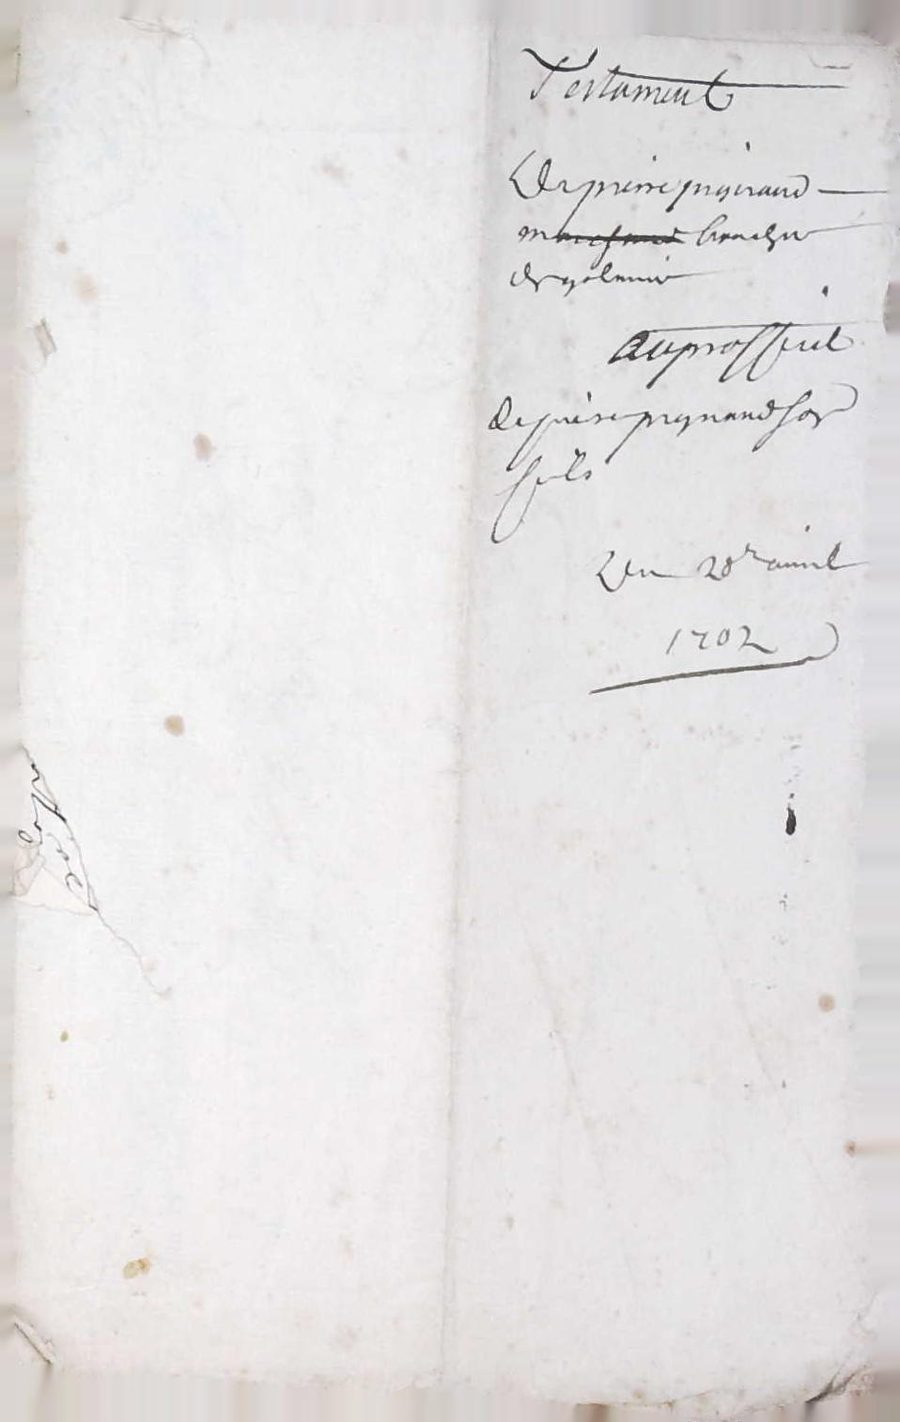 Testament
De pierre peynaud
marchand boucher
de
Au proffiut
de pierre peynaud son
fils
Du 28e auril
1702